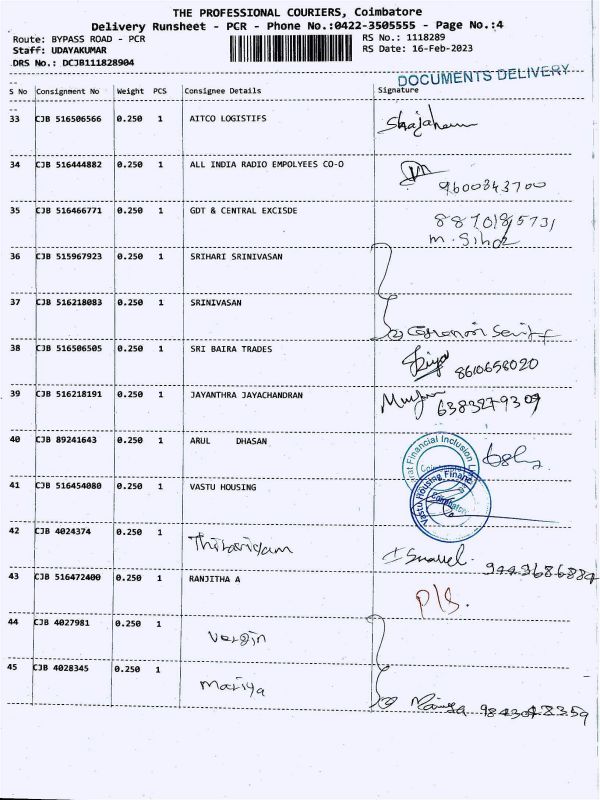 THE PROFESSIONAL COURIERS, Coimbatore
Delivery Runsheet - PCR - Phone No.:0422-3505555 - Page No.:4
Route: BYPASS ROAD - PCR RS No.: 1118289
Staff: UDAYAKUMAR RS Date: 16-Feb-2023
DRS No.: DCJB111828904
DOCUMENTS DELIVERY
S No Consignment No Weight PCS Consignee Details Signature
33 CJB 516506566 0.250 1 AITCO LOGISTIFS
34 CJB 516444882 0.250 1 ALL INDIA RADIO EMPOLYEES CO-O
9600843700
35 CJB 516466771 0.250 1 GDT & CENTRAL EXCISDE
36 CJB 515967923 0.250 1 SRIHARI SRINIVASAN
37 CJB 516218083 0.250 1 SRINIVASAN
38 CJB 516506505 0.250 1 SRI BAIRA TRADES
8610658020
39 CJB 516218191 0.250 1 JAYANTHRA JAYACHANDRAN
6383279309
40 CJB 89241643 0.250 1 ARUL DHASAN
Financial Inclusion
41 CJB 516454080 0.250 1 VASTU HOUSING
Vastu Housing Finance
Coimbatore
42 CJB 4024374 0.250 1
9443686884
43 CJB 516472400 0.250 1 RANJITHA A
P/S.
44 CJB 4027981 0.250 1 Vergin
45 CJB 4028345 0.250 1 Mariya